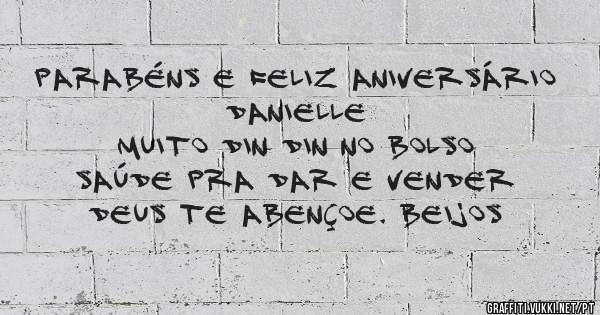 PARABÉNS E FELIZ ANIVERSÁRIO
DANIELLE
MUITO DIN DIN NO BOLSO
SAÚDE PRA DAR E VENDER
DEUS TE ABENÇOE. BEIJOS
GRAFFITI.VUKKI.NET/PT